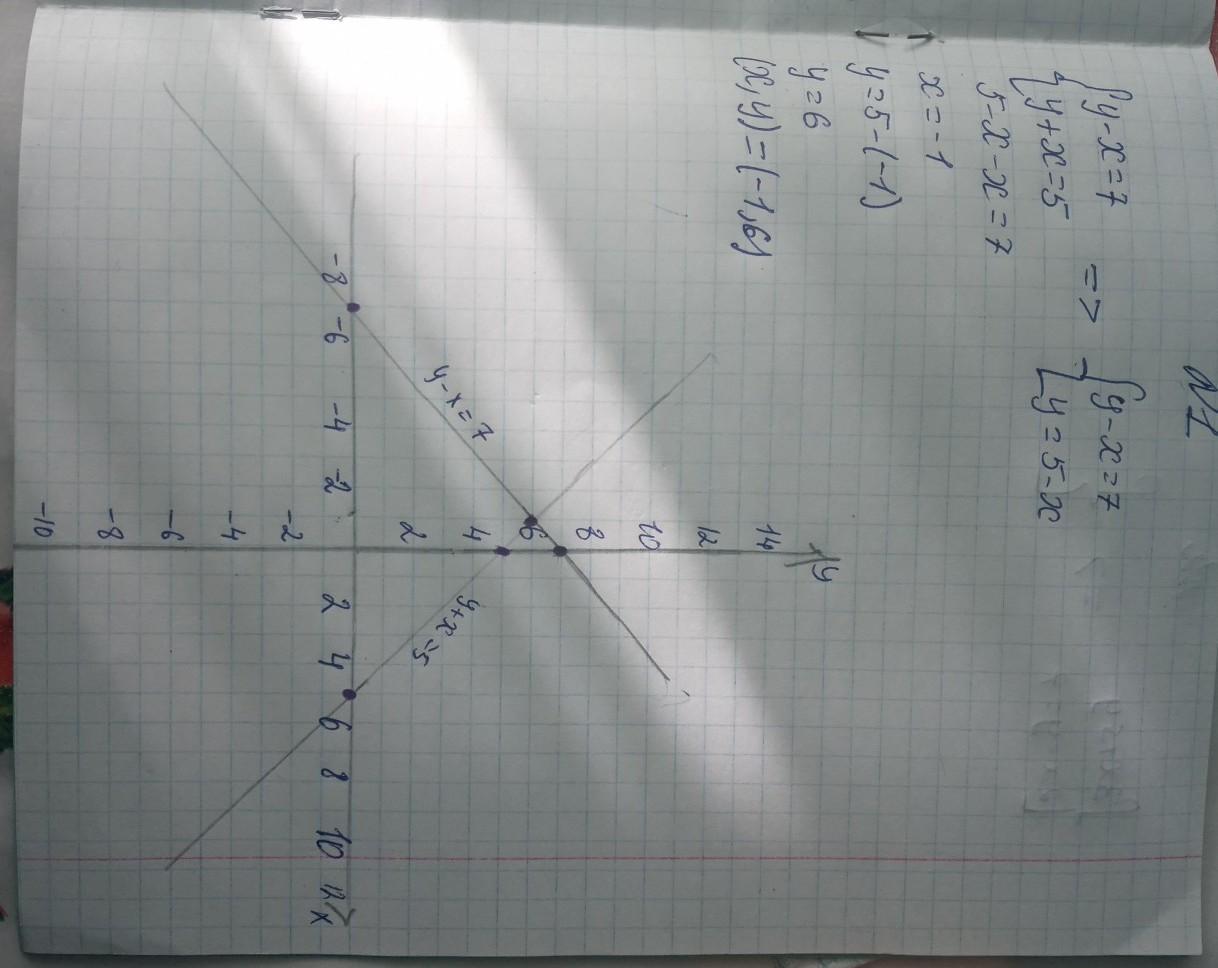 №1
{y-x=7 => {y-x=7
{y+x=5 {y=5-x
5-x-x=7
x=-1
y=5-(-1)
y=6
(x,y)=(-1,6)
y
14
12
10
8
6
4
2
-2
-4
-6
-8
-10
-8 -6 -4 -2 2 4 6 8 10 12 x
y-x=7
y+x=5